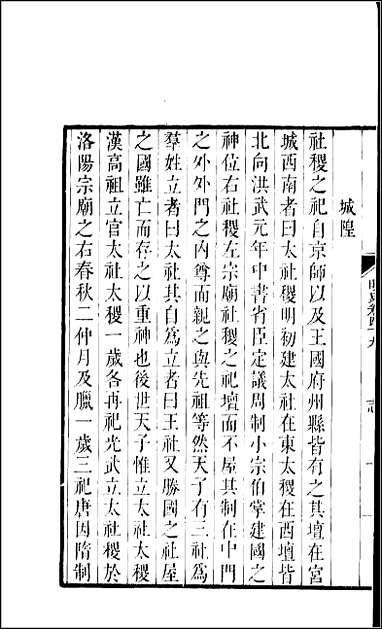 城隍
社稷之祀自京師以及王國府州縣皆有之其壇在宮
城西南者曰太社稷明初建太社在東太稷在西壇皆
北向洪武元年中書省臣定議周制小宗伯掌建國之
神位右社稷左宗廟社稷之祀壇而不屋其制在中門
之外外門之內尊而親之與先祖等然天子有三社爲
羣姓立者曰太社其自爲立者曰王社又勝國之社屋
之國雖亡而存之以重神也後世天子惟立太社太稷
漢高祖立官太社太稷一歲各再祀光武立太社稷於
洛陽宗廟之右春秋二仲月及臘一歲三祀唐因隋制